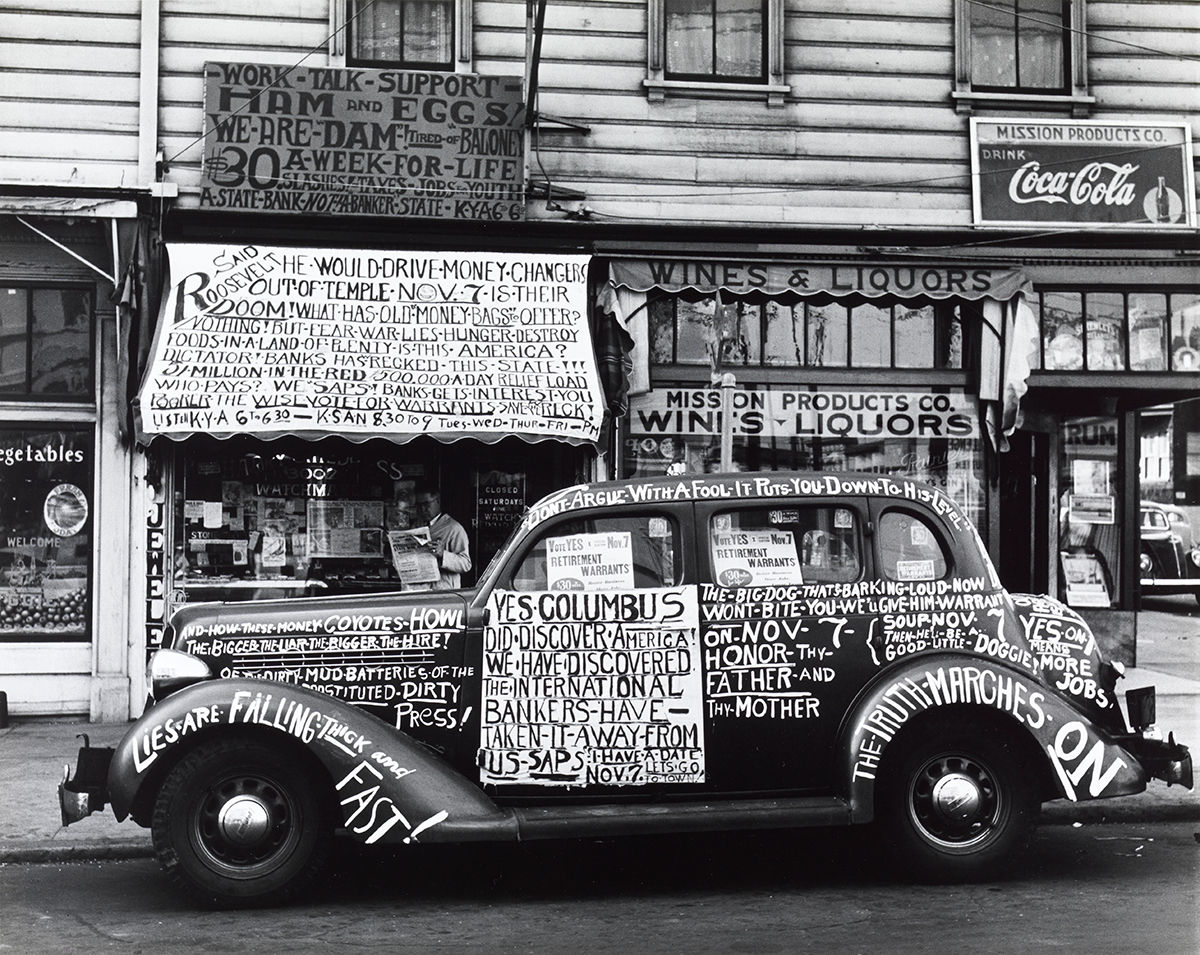 WORK - TALK - SUPPORT -
HAM AND EGGS!
WE-ARE-DAM-! TIRED-OF-BALONEY
$30 A-WEEK-FOR-LIFE!
SLASHES-TAXES-JOBS-YOUTH
A-STATE-BANK-NOT-A-BANKER-STATE-KYA 6-
MISSION PRODUCTS CO.
DRINK
Coca-Cola
SAID ROOSEVELT HE-WOULD-DRIVE-MONEY-CHANGERS
OUT-OF-TEMPLE-NOV.-7-IS-THEIR
DOOM! WHAT-HAS-OLD-MONEY-BAGS-TO-OFFER?
NOTHING! BUT-FEAR-WAR-LIES-HUNGER-DESTROY
FOODS-IN-A-LAND-OF-PLENTY-IS-THIS-AMERICA?
DICTATOR! BANKS HAS-RECKED-THIS-STATE!!!
MILLION-IN-THE-RED $500.000-A-DAY RELIEF LOAD
WHO-PAYS? WE-SAPS! BANKS-GETS-INTEREST-YOU
THE WISE VOTE FOR WARRANTS-SAVE
K-Y-A 6 TO 6:30 - K-SAN 8.30 TO 9 TUES-WED-THUR-FRI-P-M
WINES & LIQUORS
MISSION PRODUCTS CO.
WINES - LIQUORS
RUM
egetables
WELCOME
CLOSED
SATURDAYS
DON'T-ARGUE-WITH-A-FOOL-IT-PUTS-YOU-DOWN-TO-HIS-LEVEL
VOTE YES NOV. 7
RETIREMENT
WARRANTS
$30
VOTE YES NOV. 7
RETIREMENT
WARRANTS
$30
AND-HOW-THESE-MONEY COYOTES-HOWL
THE-BIGGER-THE-LIAR-THE-BIGGER-THE-HIRE!
OF-DIRTY-MUD-BATTERIES-OF THE
DIRTY
PRESS!
LIES-ARE-FALLING-THICK AND
FAST!
YES-COLUMBUS
DID-DISCOVER-AMERICA!
WE-HAVE-DISCOVERED
THE-INTERNATIONAL
BANKERS-HAVE-
TAKEN-IT-AWAY-FROM
US-SAPS! I-HAVE-A-DATE
NOV. 7 LETS-GO
TO-TOWN
THE-BIG-DOG-THATS-BARKING-LOUD-NOW
WONT-BITE-YOU-WE'LL GIVE-HIM-WARRANT
SOUP-NOV-7-
THEN-HE'LL-BE-A-
GOOD-LITTLE-DOGGIE
ON-NOV-7-
HONOR-THY-
FATHER-AND
THY-MOTHER
YES-ON-7
MEANS
MORE
JOBS,
THE-TRUTH-MARCHES-ON